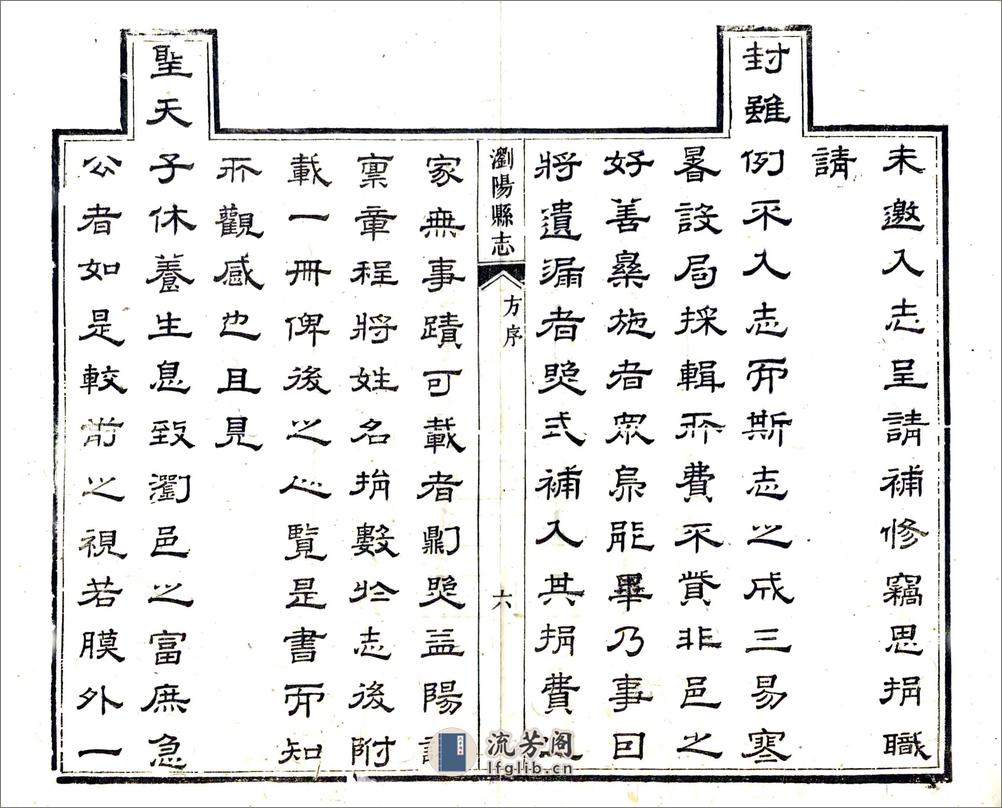 未邀入志呈請補修竊思捐職
請
封雖例不入志而斯志之成三易寒
暑設局採輯所費不貲非邑之
好善樂施者眾烏能畢乃事因
將遺漏者照式補入其捐費
瀏陽縣志
方序
六
家無事蹟可載者則照益陽
稟章程將姓名捐數於志後附
載一冊俾後之人覽是書而知
所觀感也且見
聖天子休養生息致瀏邑之富庶急
公者如是較前之視若膜外一
流芳阁
lfglib.cn